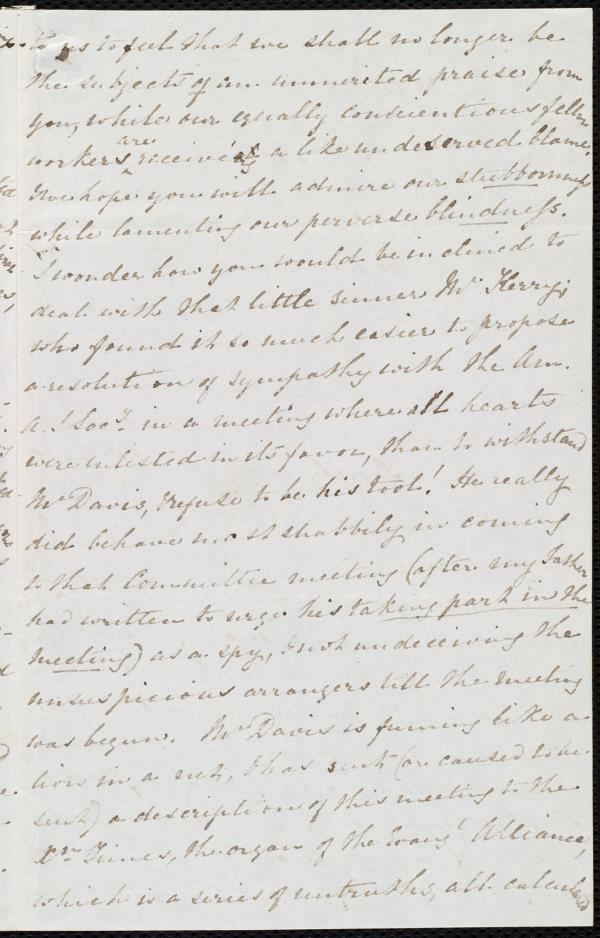 to us to feel that we shall no longer be
the subjects of an unmerited praise from
you, while our equally conscientious fellow
workers are receiving a like undeserved blame.
I we hope you will admire our stubbornness
while lamenting our perverse blindness.
I wonder how you would be inclined to
deal with that little sinner Mr Kerry,
who found it so much easier to propose
a resolution of sympathy with the Am.
A. S Socy. in a meeting where all hearts
were enlisted in its favor, than to withstand
Mr Davis, & refuse to be his tool! He really
did behave most shabbily in coming
to that Committee meeting (after my Father
had written to urge his taking part in the
meeting) as a spy, & not undeceiving the
unsuspicious arrangers till the meeting
was begun. Mr Davis is fuming like a
lion in a net, & has sent (or caused to be
sent) a description of this meeting to the
Xn Times, the organ of the Evangl Alliance,
which is a series of untruths, all calculated